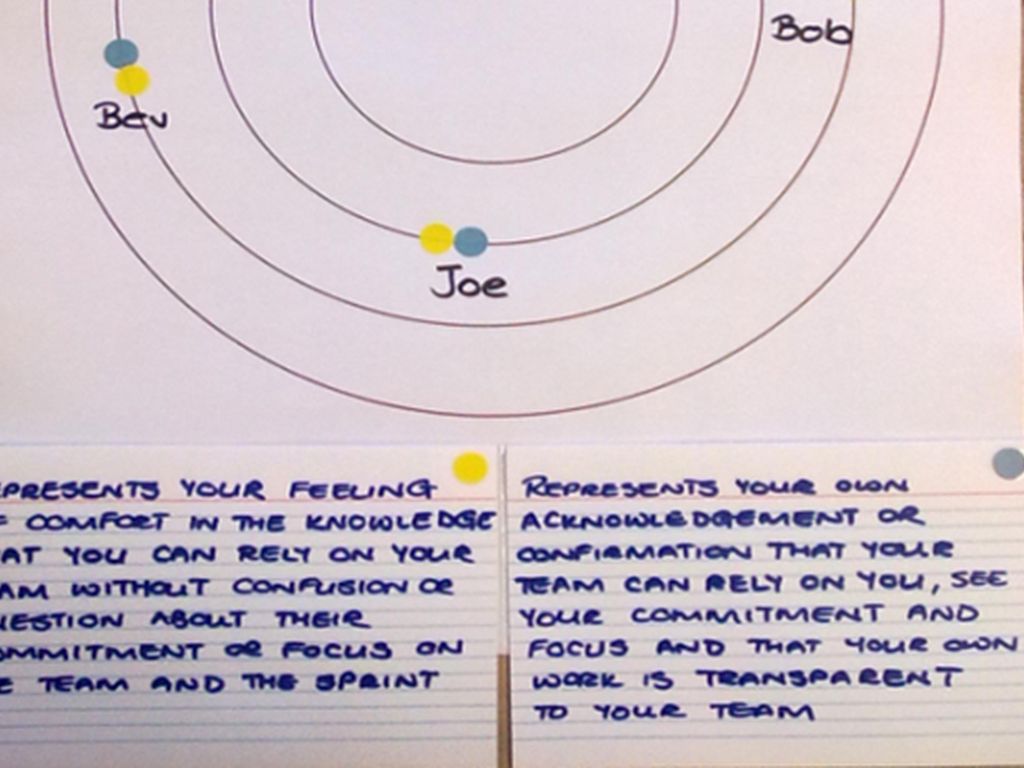 Bob
Bev
Joe
PRESENTS YOUR FEELING
COMFORT IN THE KNOWLEDGE
AT YOU CAN RELY ON YOUR
AM WITHOUT CONFUSION OR
ESTION ABOUT THEIR
OMMITMENT OR FOCUS ON
E TEAM AND THE SPRINT
REPRESENTS YOUR OWN
ACKNOWLEDGEMENT OR
CONFIRMATION THAT YOUR
TEAM CAN RELY ON YOU, SEE
YOUR COMMITMENT AND
FOCUS AND THAT YOUR OWN
WORK IS TRANSPARENT
TO YOUR TEAM